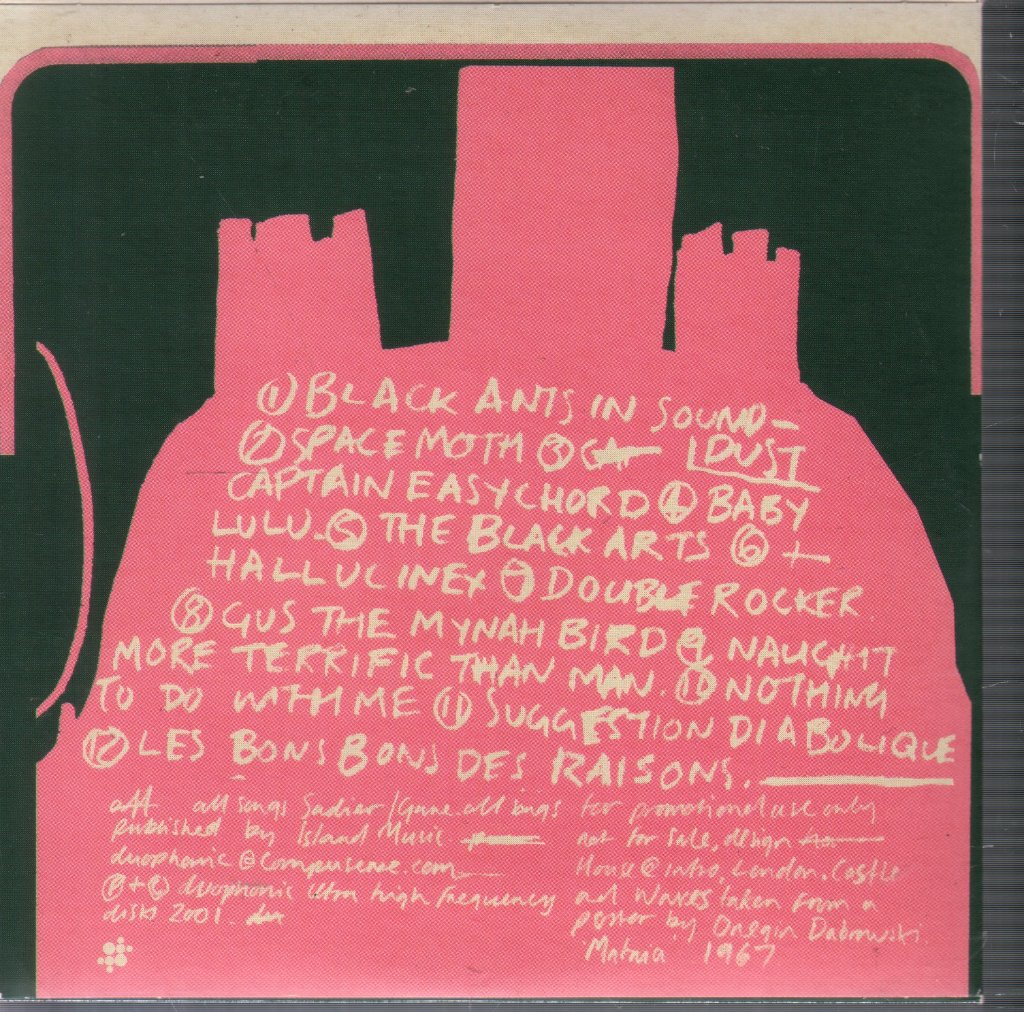 ① BLACK ANTS IN SOUND-
② SPACE MOTH ③ DUST
CAPTAIN EASYCHORD ④ BABY
LULU. ⑤ THE BLACK ARTS ⑥
HALLUCINEX ⑦ DOUBLE ROCKER
⑧ GUS THE MYNAH BIRD ⑨ NAUGHT
MORE TERRIFIC THAN MAN. ⑩ NOTHING
TO DO WITH ME ⑪ SUGGESTION DIABOLIQUE
⑫ LES BONS BONS DES RAISONS.
all songs Sadier/Gane. all
published by Island Music
duophonic @
Ⓟ+Ⓒ duophonic ultra high frequency
disks 2001.
for promotional use only
not for sale, design
House @ intro, London. Castle
and waves taken from a
poster by Onegin Dabrowski
1967